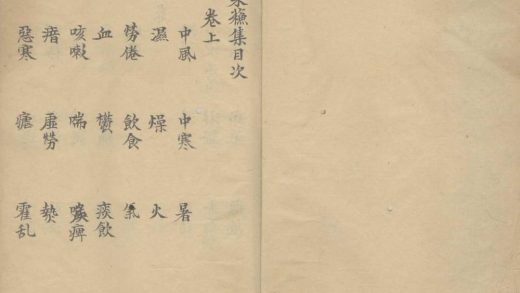 集目次
卷上
中風 中寒 暑
濕 燥 火
勞倦 飲食 氣
血 鬱 痰飲
咳嗽 喘 喉痺
瘖 虛勞 熱
惡寒 瘧 霍乱